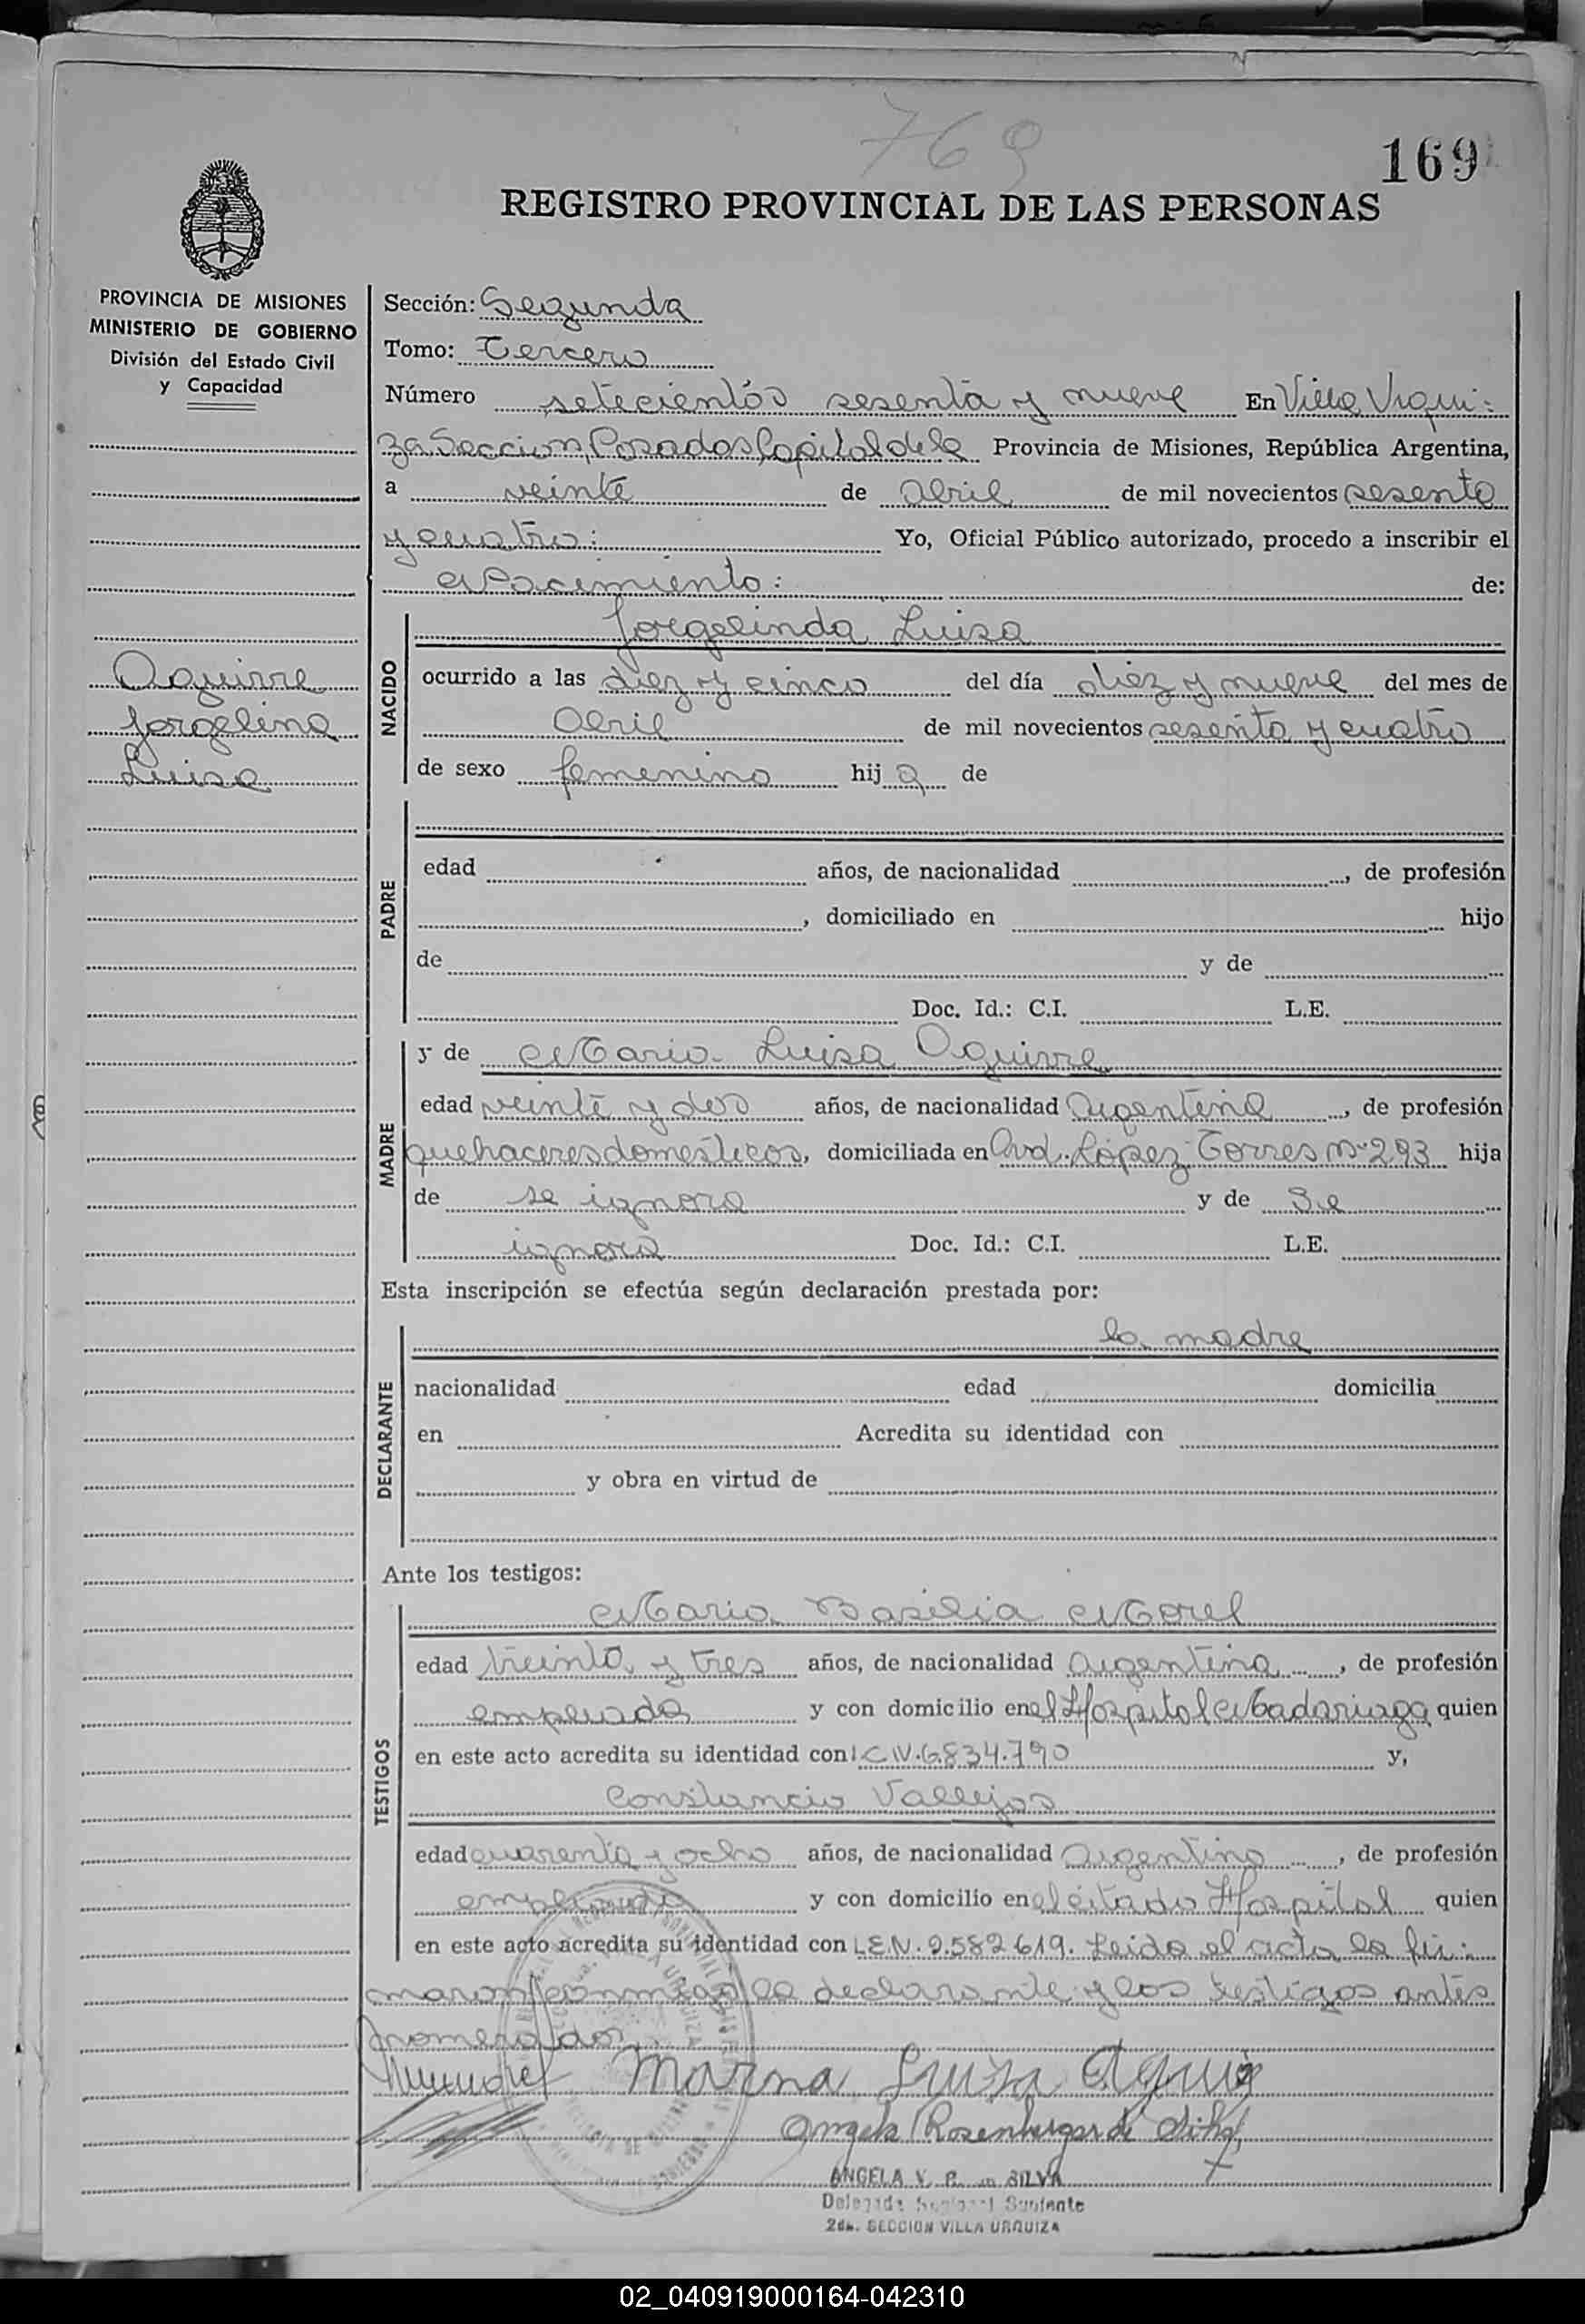 769
169
REGISTRO PROVINCIAL DE LAS PERSONAS
PROVINCIA DE MISIONES
MINISTERIO DE GOBIERNO
División del Estado Civil
y Capacidad
Aguirre
Jorgelina
Luisa
Sección: Segunda
Tomo: Tercero
Número setecientos sesenta y nueve En Villa Urqui-
za Seccion, Posadas, Capital de la Provincia de Misiones, República Argentina,
a veinte de Abril de mil novecientos sesenta
y cuatro: Yo, Oficial Público autorizado, procedo a inscribir el
Nacimiento: de:
NACIDO
Jorgelinda Luisa
ocurrido a las diez y cinco del día diez y nueve del mes de
Abril de mil novecientos sesenta y cuatro
de sexo femenino hij a de
PADRE
edad años, de nacionalidad , de profesión
, domiciliado en hijo
de y de
Doc. Id.: C.I. L.E.
MADRE
y de Maria Luisa Aguirre
edad veinte y dos años, de nacionalidad Argentina , de profesión
quehaceres domésticos, domiciliada en Avd. López Torres Nº 293 hija
de se ignora y de Se
ignora Doc. Id.: C.I. L.E.
Esta inscripción se efectúa según declaración prestada por:
DECLARANTE
la madre
nacionalidad edad domicilia
en Acredita su identidad con
y obra en virtud de
Ante los testigos:
TESTIGOS
Maria Basilia Morel
edad treinta y tres años, de nacionalidad Argentina , de profesión
empleada y con domicilio en el Hospital Madariaga quien
en este acto acredita su identidad con L.C.N. 6.834.790 y,
Constancio Vallejos
edad cuarenta y ocho años, de nacionalidad Argentino , de profesión
empleado y con domicilio en el citado Hospital quien
en este acto acredita su identidad con L.E.N. 2.582.619. Leida el acta la fir-
maron conmigo la declarante y los testigos antes
nomerados
Marina Luisa Aguirre
Angela Rosenberger de Silva
ANGELA V. R. de SILVA
Delegada Suplente
2da. SECCION VILLA URQUIZA
02_040919000164-042310